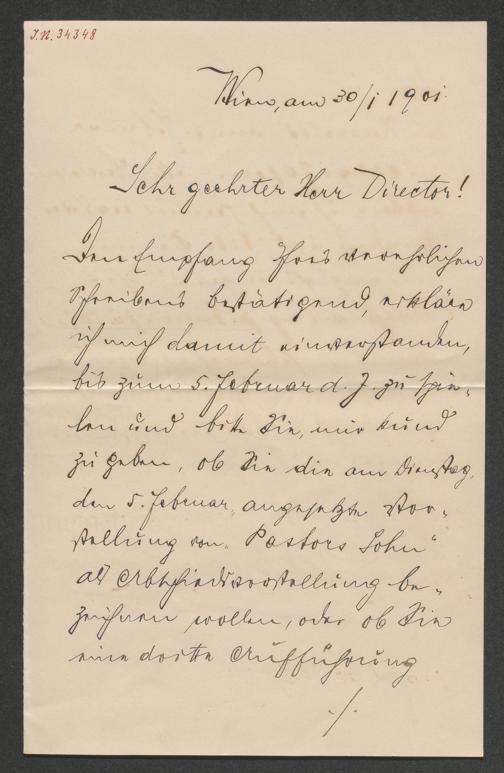 J.N. 34348
Wien, am 30/I 1901.
Sehr geehrter Herr Director!
Den Empfang Ihres verehrlichen
Schreibens bestätigend, erkläre
ich mich damit einverstanden,
bis zum 5. Februar d. J. zu spie-
len und bitte Sie, mir kund
zu geben, ob Sie die am Dienstag,
den 5. Februar, angesetzte Vor-
stellung von "Pastors Sohn"
als Abschiedsvorstellung be-
zeichnen wollen, oder ob Sie
eine dritte Aufführung
./.